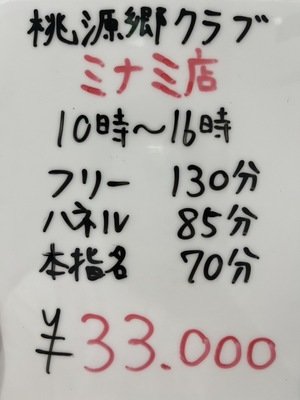 桃源郷クラブ
ミナミ店
10時〜16時
フリー 130分
パネル 85分
本指名 70分
¥33.000